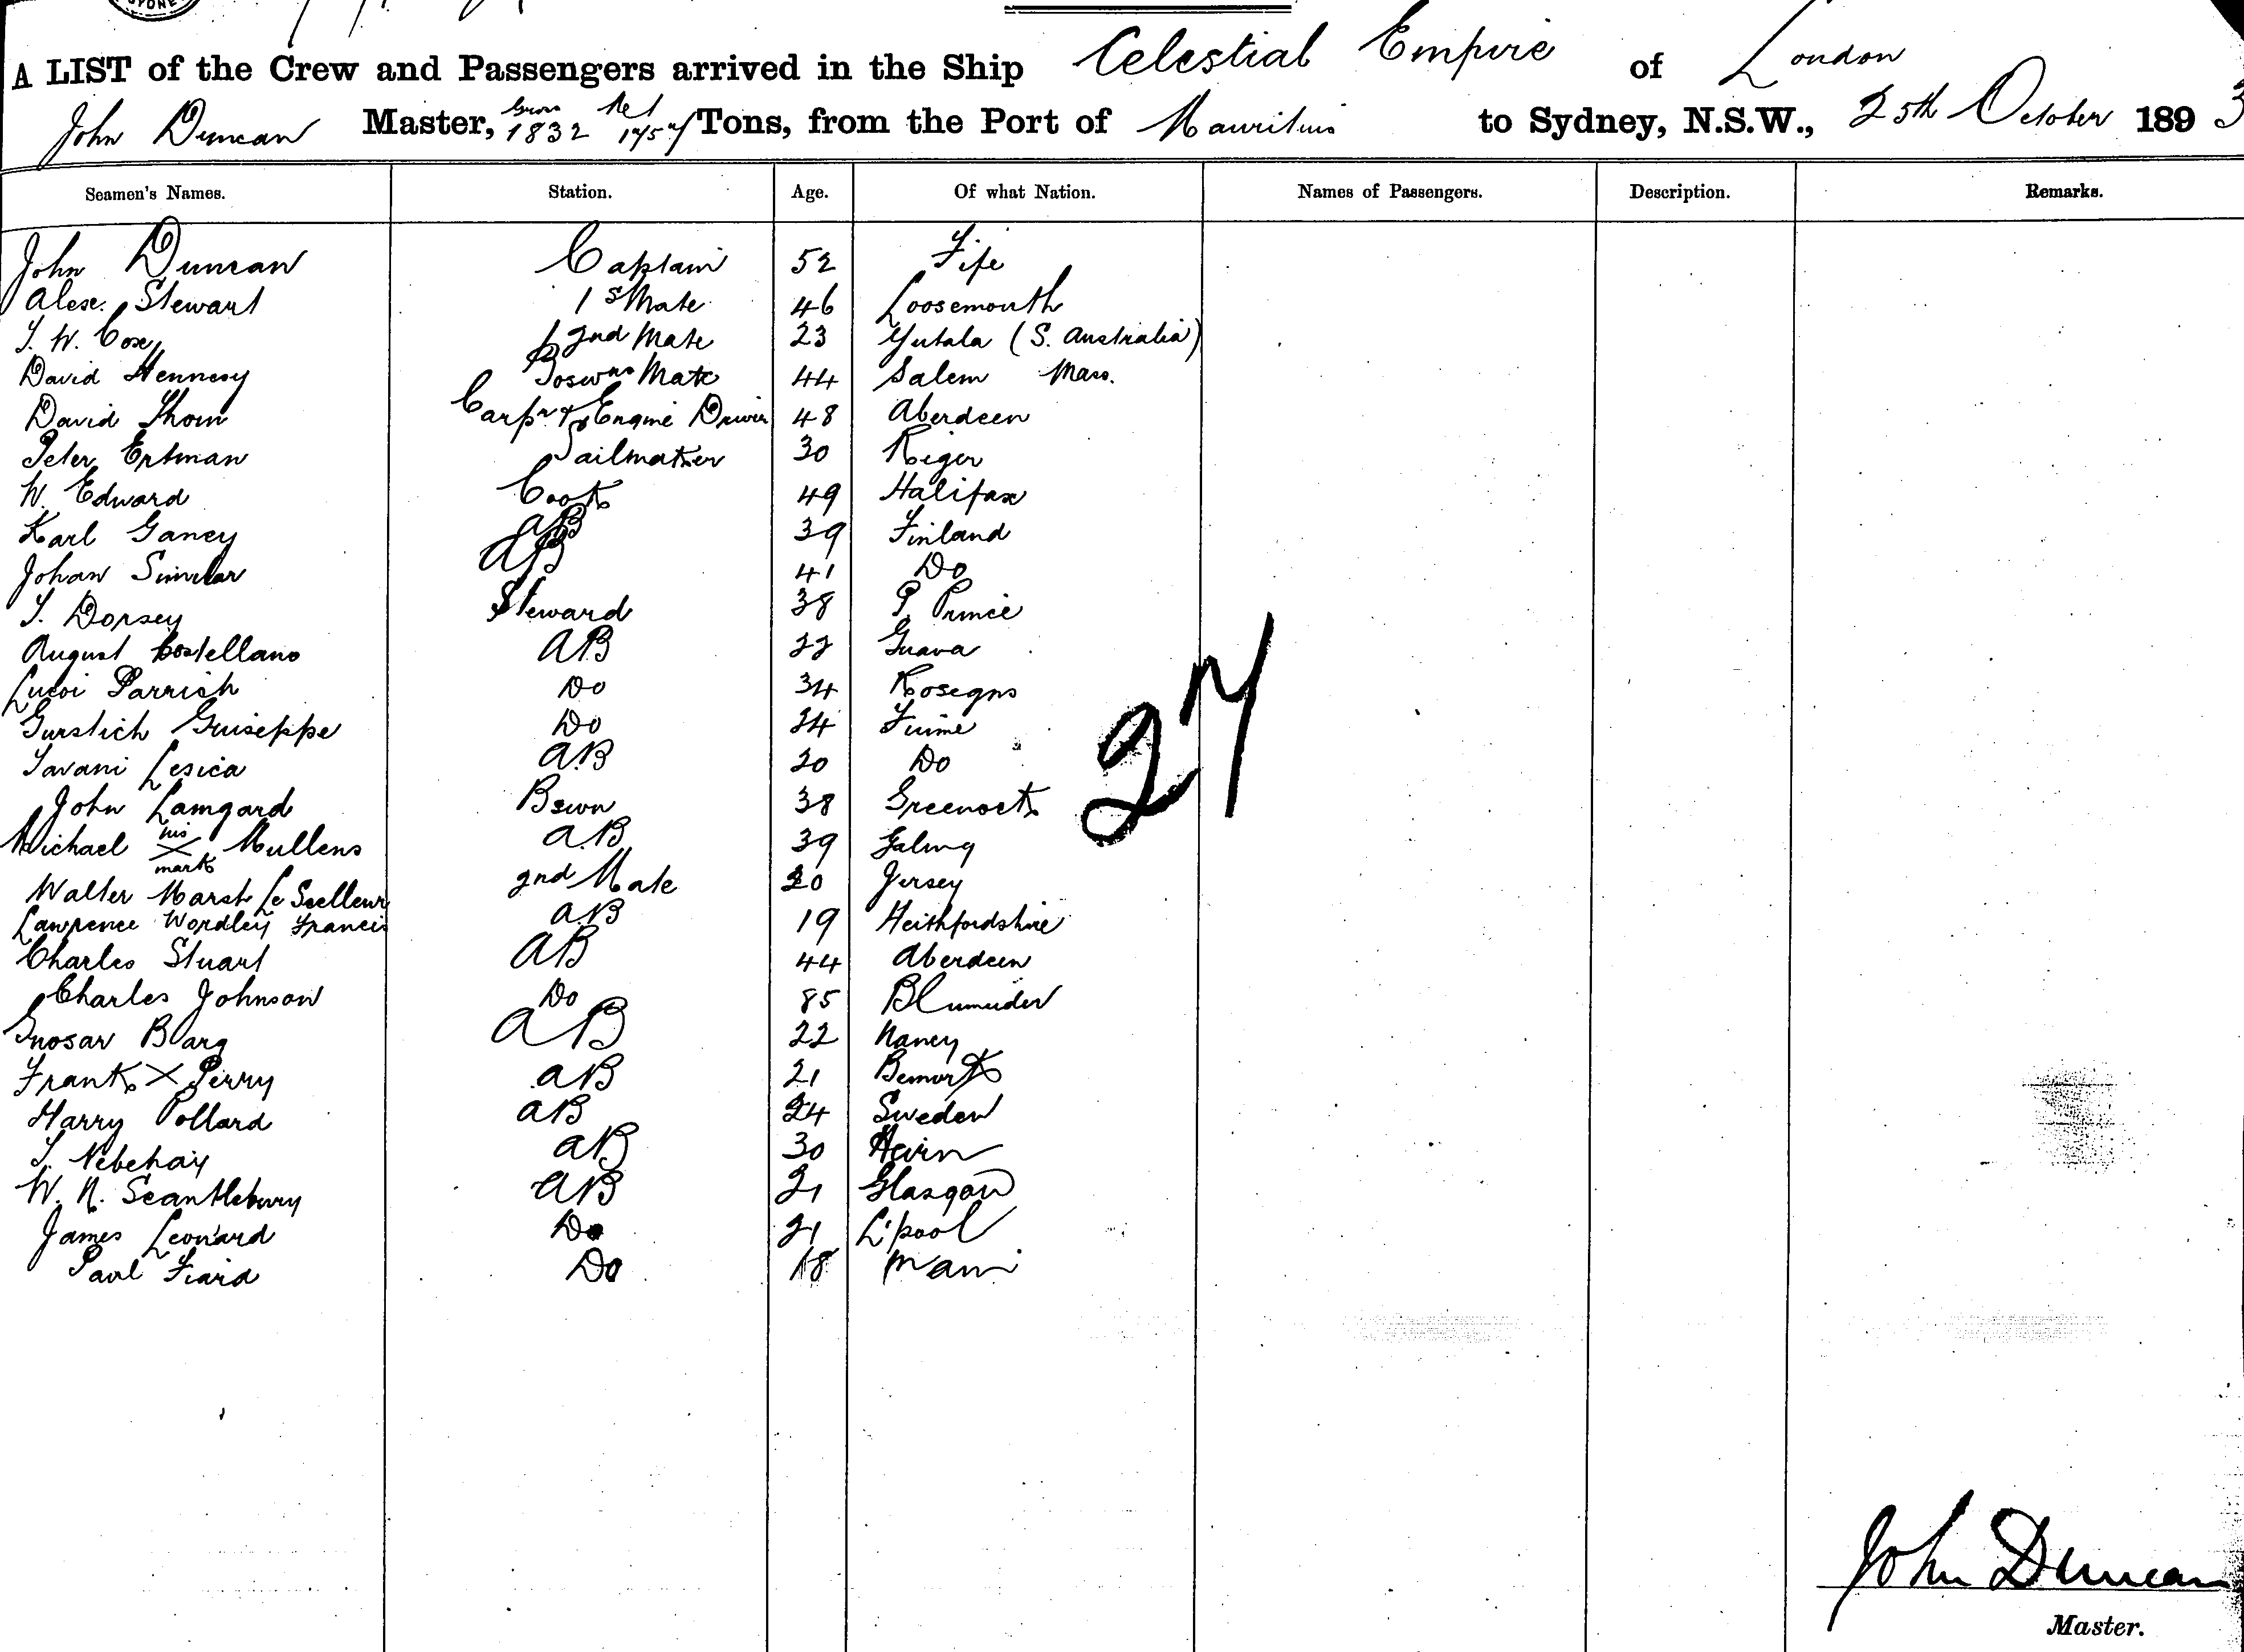 A LIST of the Crew and Passengers arrived in the Ship Celestial Empire of London
John Duncan Master, Gross 1832 Net 1757 Tons, from the Port of Mauritius to Sydney, N.S.W., 25th October 1893
Seamen's Names. Station. Age. Of what Nation. Names of Passengers. Description. Remarks.
John Duncan Captain 52 Fife
Alex. Stewart 1st Mate 46 Loosemouth
T. W. Cox 2nd Mate 23 Yutala (S. Australia)
David Hennesy Boswns Mate 44 Salem Mass.
David Thom Carpr & Engine Driver 48 Aberdeen
Peter Ertman Sailmaker 30 Riger
W. Edward Cook 49 Halifax
Karl Ganey AB 39 Finland
Johan Similar AB 41 Do
T. Dorsey Steward 38 P. Prince
August Costellano AB 22 Guava
Lucoi Parrich Do 34 Rosegns
Gurstich Guiseppe Do 24 Fuime
Tavani Lesica AB 20 Do
John Lamgard Bswn 38 Greenock
Michael his X mark Mullens A.B 39 Galwy
Walter Marsh Le Seelleur 2nd Mate 20 Jersey
Lawrence Wordley Francis A.B 19 Heithfordshire
Charles Stuart AB 44 Aberdeen
Charles Johnson Do 85 Blumuder
Gnosar Barg AB 22 Nancy
Frank X Perry AB 21
Harry Pollard AB 24 Sweden
T. Nebehay AB 30
W. N. Scantlebury AB 21 Glasgow
James Leonard Do 21 L'pool
Paul Fiard Do 18
27
John Duncan
Master.